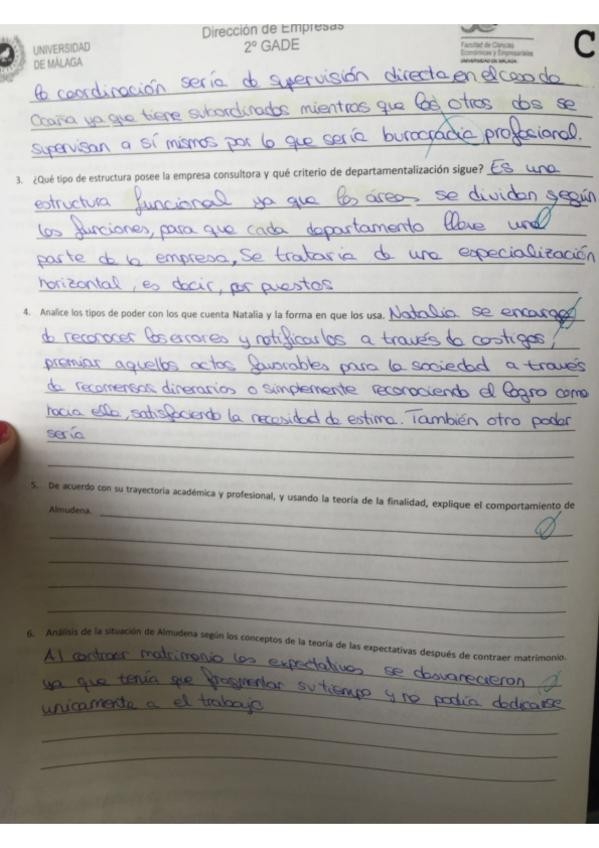 Dirección de Empresas
2º GADE
UNIVERSIDAD
DE MÁLAGA
Facultad de Ciencias
Económicas y Empresariales
UNIVERSIDAD DE MÁLAGA
C
la coordinación sería de supervisión directa en el caso de
Ocaña ya que tiene subordinados mientras que los otros dos se
supervisan a sí mismos por lo que sería burocracia profesional.
3. ¿Qué tipo de estructura posee la empresa consultora y qué criterio de departamentalización sigue? Es una
estructura funcional ya que las áreas se dividen según
las funciones, para que cada departamento lleve una
parte de la empresa, Se trataría de una especialización
horizontal, es decir, por puestos
4. Analice los tipos de poder con los que cuenta Natalia y la forma en que los usa. Natalia se encarga
de reconocer los errores y notificarlos a través de castigos,
premiar aquellos actos favorables para la sociedad a través
de recomensas dinerarias o simplemente reconociendo el logro como
hacia ella, satisfaciendo la necesidad de estima. También otro poder
sería
5. De acuerdo con su trayectoria académica y profesional, y usando la teoría de la finalidad, explique el comportamiento de
Almudena.
6. Análisis de la situación de Almudena según los conceptos de la teoría de las expectativas después de contraer matrimonio.
Al contraer matrimonio las expectativas se desvanecieron
ya que tenía que fragmentar su tiempo y no podía dedicarse
unicamente a el trabajo